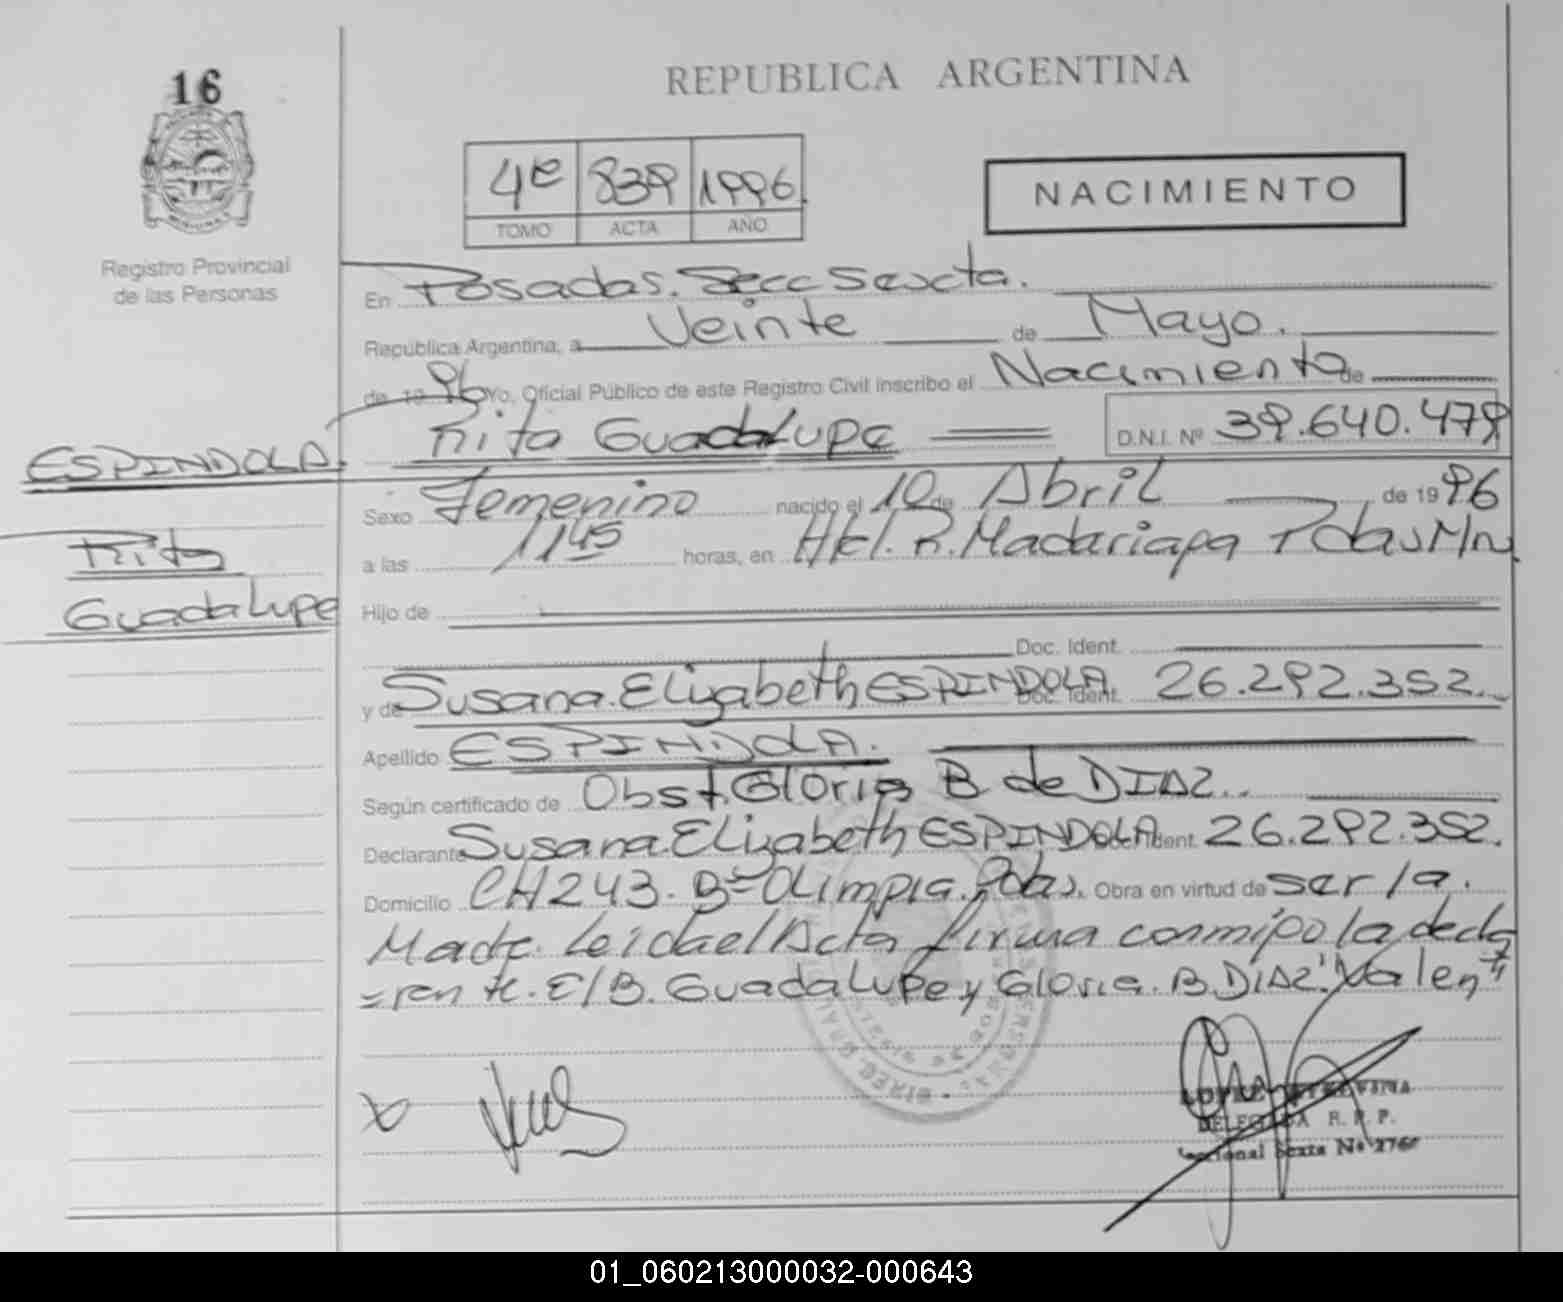 16
REPUBLICA ARGENTINA
4e 839 1996
TOMO ACTA AÑO
NACIMIENTO
Registro Provincial
de las Personas
En Posadas. Secc Sexcta.
República Argentina, a Veinte de Mayo.
de 1996 Yo, Oficial Público de este Registro Civil inscribo el Nacimiento de
Rita Guadalupe D.N.I. Nº 39.640.479
ESPINDOLA.
Rita
Guadalupe
Sexo Femenino nacido el 10 de Abril de 1996
a las 1145 horas, en Htal. R. Madariaga Pdas Mns
Hijo de
Doc. Ident.
y de Susana Elizabeth ESPINDOLA Doc. Ident. 26.292.352.
Apellido ESPINDOLA.
Según certificado de Obst. Gloria B de DIAZ.
Declarante Susana Elizabeth ESPINDOLA Ident. 26.292.352.
Domicilio CH 243. Bº Olimpia. Pdas. Obra en virtud de ser la.
Madre. Leida el Acta firma conmigo la decla
=rante. E/B. Guadalupe y Gloria. B. DIAZ. Valen"
DELEGADA R. P. P.
Seccional Sexta Nº 276
01_060213000032-000643